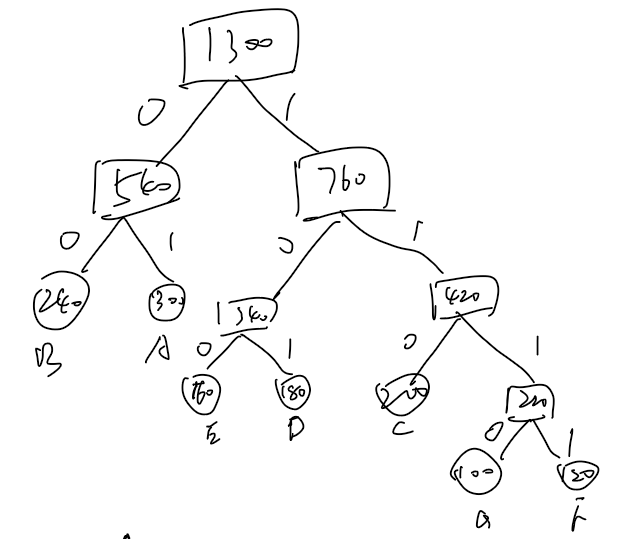 1300
0 1
540 760
0 1 0 1
240 300 340 420
B A 0 1 0 1
160 180 200 220
E D C 0 1
100 120
G F